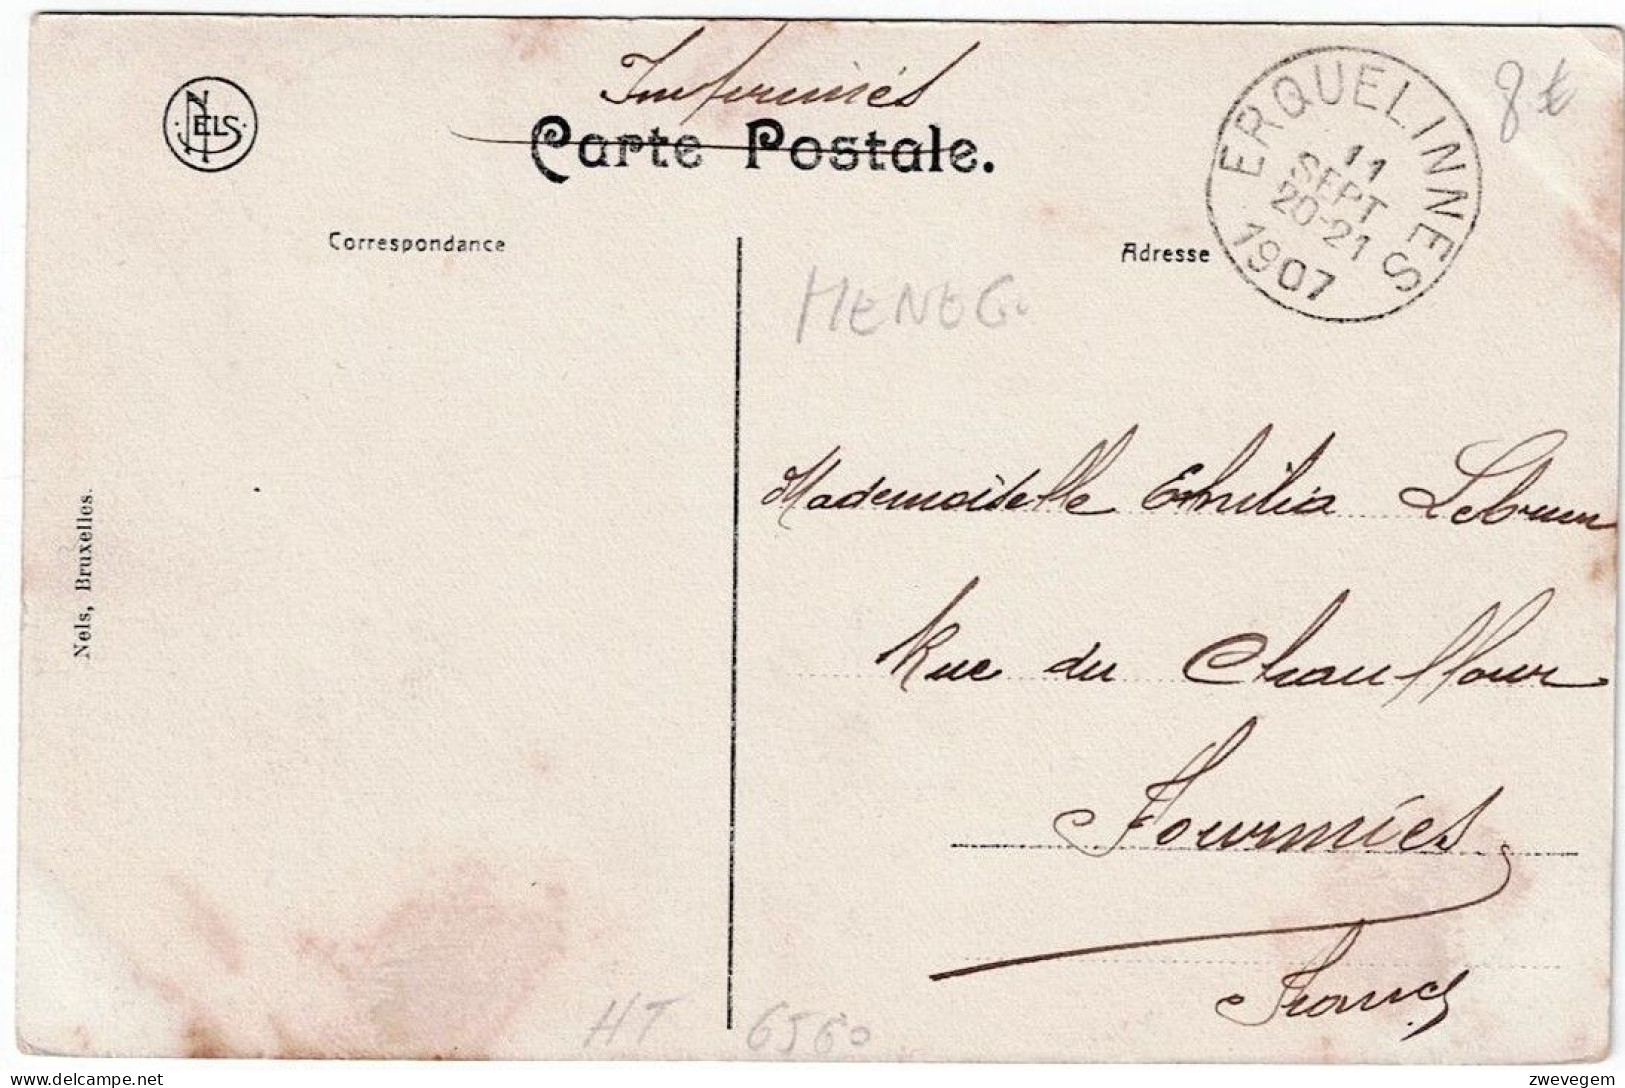 Imprimés
NELS
Carte Postale.
ERQUELINNES
11
SEPT
20-21
1907
8 €
Correspondance
Adresse
Mademoiselle Emilia Lebrun
Rue du Chauffour
Fourmies
France
Nels, Bruxelles.
HT 6560
www.delcampe.net
zwevegem